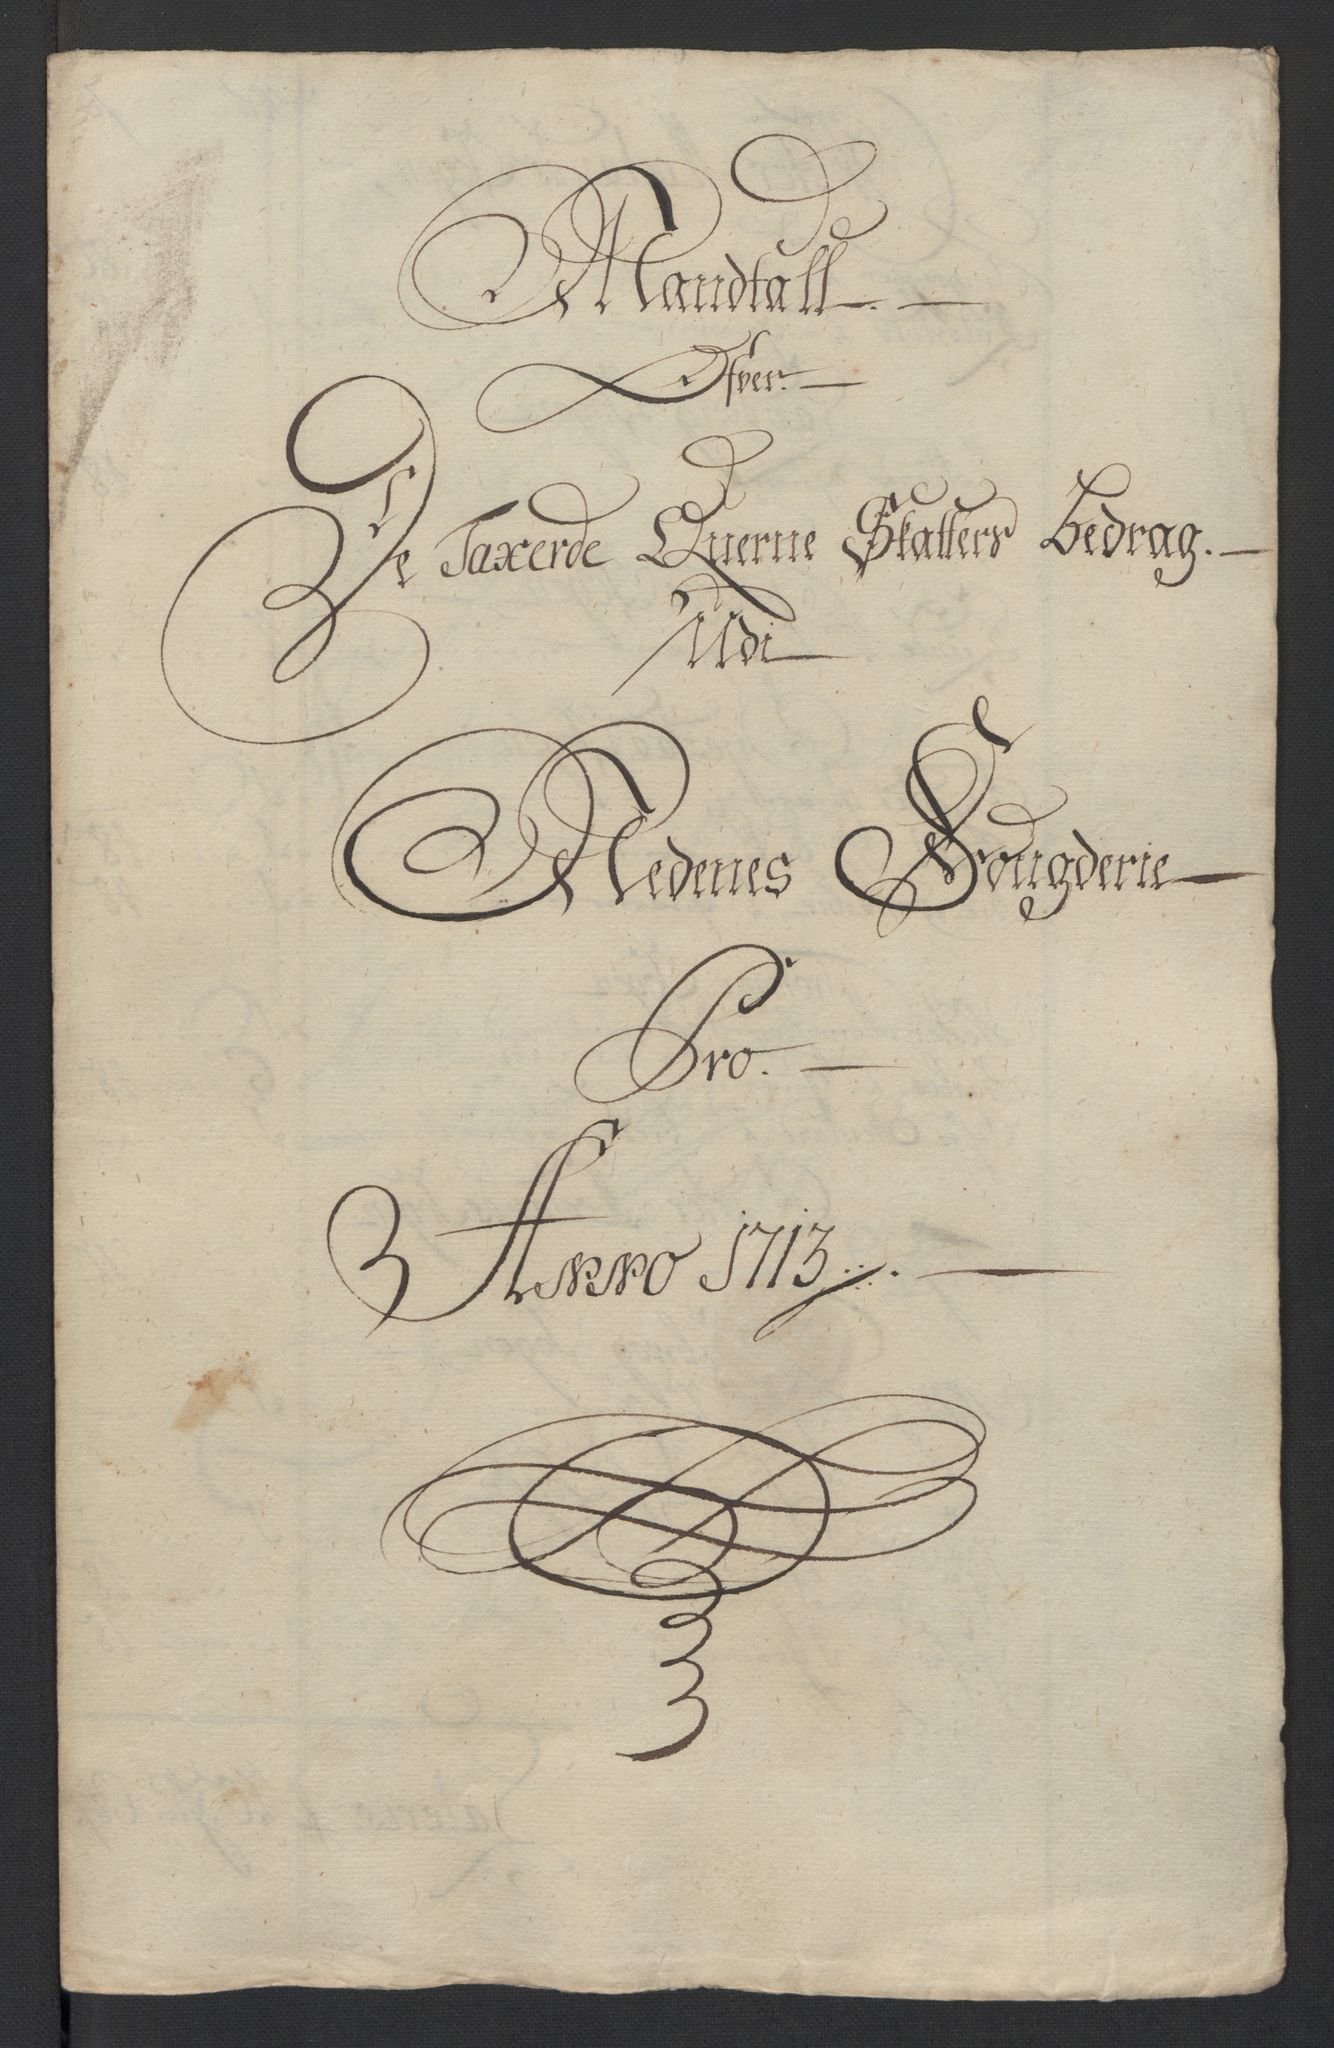 Mandtall
Ofver
De Taxerde Querne Skatters bedrag.
Udi
Nedenes Fougderie
Pro.
Anno 1713